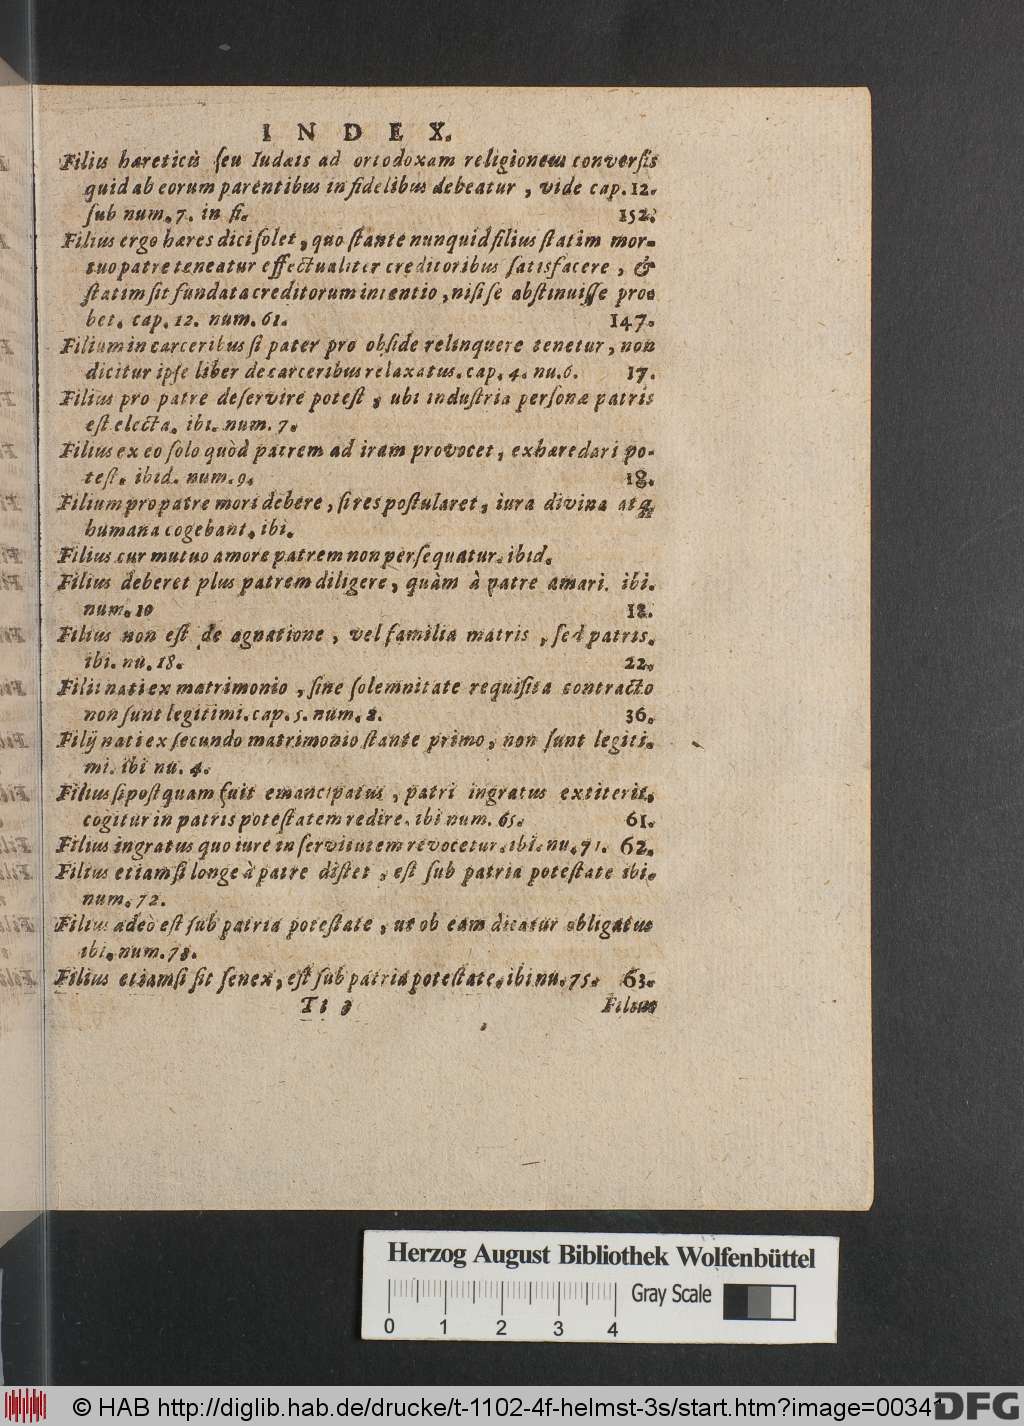 INDEX.
Filius hæreticis seu Iudæis ad ortodoxam religionem conversis
quid ab eorum parentibus infidelibus debeatur, vide cap. 12.
sub num. 7. in fi. 152.
Filius ergo hæres dici solet, quo stante nunquid filius statim mor-
tuo patre teneatur effectualiter creditoribus satisfacere, &
statim sit fundata creditorum intentio, nisi se abstinuisse pro-
bet. cap. 12. num. 61. 147.
Filium in carceribus si pater pro obside relinquere tenetur, non
dicitur ipse liber de carceribus relaxatus. cap. 4. nu. 6. 17.
Filius pro patre deservire potest, ubi industria personæ patris
est electa. ibi. num. 7.
Filius ex eo solo quòd patrem ad iram provocet, exhæredari po-
test. ibid. num. 9. 18.
Filium pro patre mori debere, si res postularet, iura divina atq;
humana cogebant. ibi.
Filius cur mutuo amore patrem non persequatur. ibid.
Filius deberet plus patrem diligere, quàm à patre amari. ibi.
num. 10 18.
Filius non est de agnatione, vel familia matris, sed patris.
ibi. nu. 18. 22.
Filii nati ex matrimonio, sine solemnitate requisita contracto
non sunt legitimi. cap. 5. num. 2. 36.
Filij nati ex secundo matrimonio stante primo, non sunt legiti-
mi. ibi nu. 4.
Filius si postquam fuit emancipatus, patri ingratus extiterit,
cogitur in patris potestatem redire. ibi num. 65. 61.
Filius ingratus quo iure in servitutem revocetur. ibi. nu. 71. 62.
Filius etiamsi longe à patre distet, est sub patria potestate ibi.
num. 72.
Filius adeò est sub patria potestate, ut ob eam dicatur obligatus
ibi. num. 73.
Filius etiamsi sit senex, est sub patria potestate. ibi nu. 75. 63.
Tt 3 Filius
Herzog August Bibliothek Wolfenbüttel
Gray Scale
0 1 2 3 4
© HAB http://diglib.hab.de/drucke/t-1102-4f-helmst-3s/start.htm?image=00341
DFG